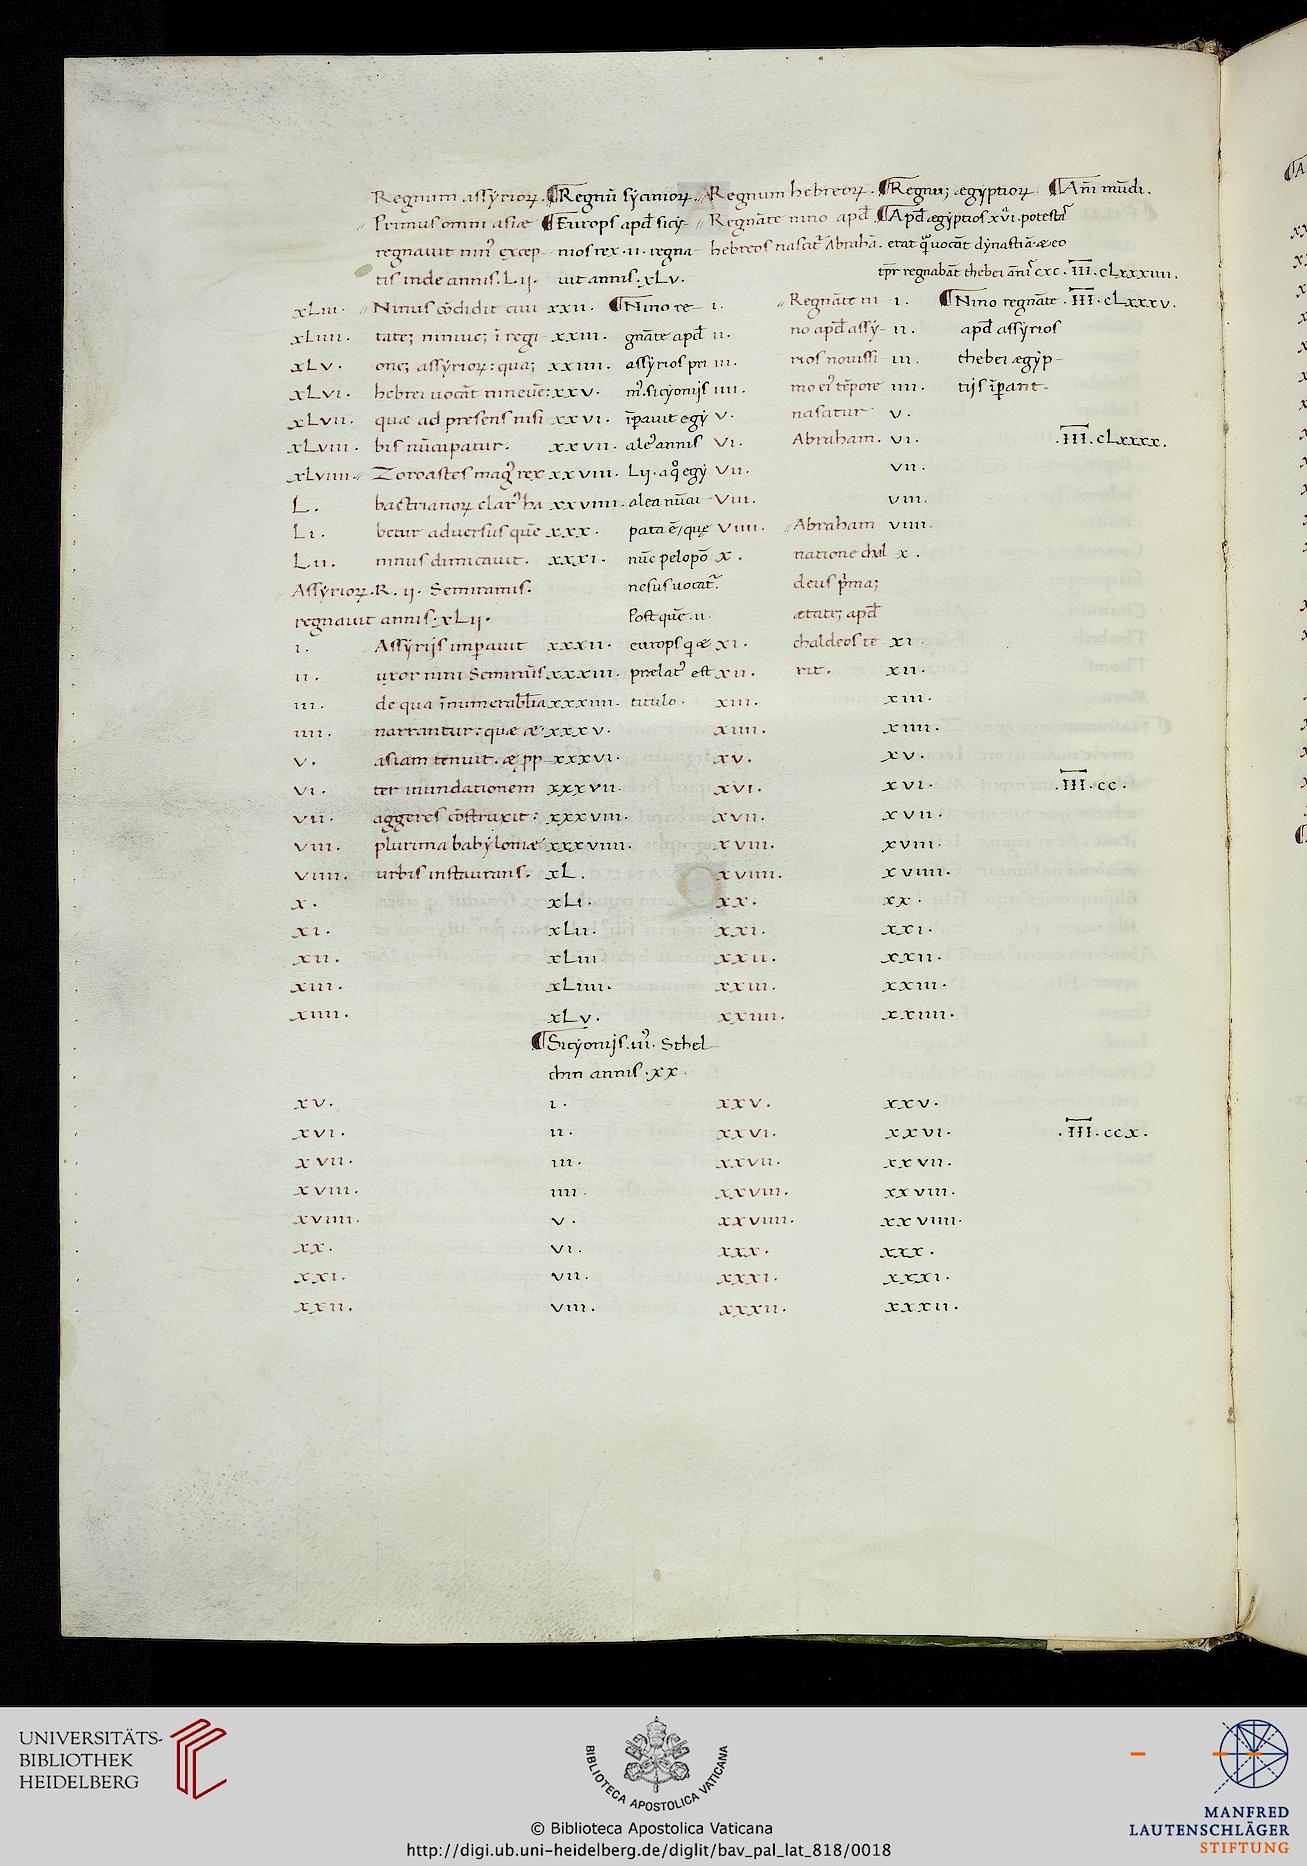 Regnum assyrioꝝ. ¶Regnū sycinioꝝ. Regnum hebreoꝝ. ¶Regnu; ægyptioꝝ. ¶Ani mūdi.
Primus omni asiæ ¶Europs apd̄ sicy- Regnāte nino apd̄ ¶Apd̄ ægyptios xvi. potestas
regnauit nin⁹ excep- nios rex .ii. regna- hebreos nascit᷑ Abrahā. erat quā uocāt dynastiā. æ eo
tis inde annis. Lii. uit annis. xLv. tpr̄ regnabāt thebei anis cxc. III. cLxxxiiii.
xLiii. Ninus cōdidit ciui xxii. ¶Nino re- i. Regnāte ni i. ¶Nino regnāte. III. cLxxxv.
xLiiii. tate; niniue; ī regi xxiii. gnāte apd̄ ii. no apd̄ assy- ii. apd̄ assyrios
xLv. one; assyrioꝝ: qua; xxiiii. assyrios pri iii. rios nouissi- iii. thebei ægyp-
xLvi. hebrei uocāt nineuē: xxv. m⁹. sicyonijs iiii. mo ei⁹ tēpore iiii. tijs īpant.
xLvii. quæ ad presens nisi xxvi. īpauit egy v. nascatur v.
xLviii. bis nūcupatur. xxvii. ale⁹ annis vi. Abraham. vi. .III. cLxxxx.
xLviiii. Zoroastes mag⁹ rex xxviii. Lii. a qo egy vii. vii.
L. bactrianoꝝ clar⁹ ha xxviiii. alea nūcu viii. viii.
Li. betur aduersus quē xxx. pata ē, quę viiii. Abraham viiii.
Lii. ninus dimicauit. xxxi. nūc pelopō x. natione chal x.
Assyrioꝝ. R. ii. Semiramis. nesus uocat᷑. deus p̄ma;
regnauit annis. xLii. Post quē .ii. ætate; apd̄
i. Assyrijs imp̄auit xxxii. europs q̄ æ xi. chaldeos te xi.
ii. uxor nini Semirāis xxxiii. prælat⁹ est xii. rit. xii.
iii. de qua īnumerabilia xxxiiii. titulo. xiii. xiii.
iiii. narrantur: quæ æ xxxv. xiiii. xiiii.
v. asiam tenuit. æ pp- xxxvi. xv. xv.
vi. ter inundationem xxxvii. xvi. xvi. .III. cc.
vii. aggeres cōstruxit: xxxviii. xvii. xvii.
viii. plurima babyloniæ xxxviiii. xviii. xviii.
viiii. urbis instaurans. xL. xviiii. xviiii.
x. xLi. xx. xx.
xi. xLii. xxi. xxi.
xii. xLiii xxii. xxii.
xiii. xLiiii. xxiii. xxiii.
xiiii. xLv. xxiiii. xxiiii.
¶Sicyonijs .iii⁹. Sthel-
chin annis. xx.
xv. i. xxv. xxv.
xvi. ii. xxvi. xxvi. .III. ccx.
xvii. iii. xxvii. xxvii.
xviii. iiii. xxviii. xxviii.
xviiii. v. xxviiii. xxviiii.
xx. vi. xxx. xxx.
xxi. vii. xxxi. xxxi.
xxii. viii. xxxii. xxxii.
UNIVERSITÄTS-
BIBLIOTHEK
HEIDELBERG
BIBLIOTECA APOSTOLICA VATICANA
© Biblioteca Apostolica Vaticana
http://digi.ub.uni-heidelberg.de/diglit/bav_pal_lat_818/0018
MANFRED
LAUTENSCHLÄGER
STIFTUNG